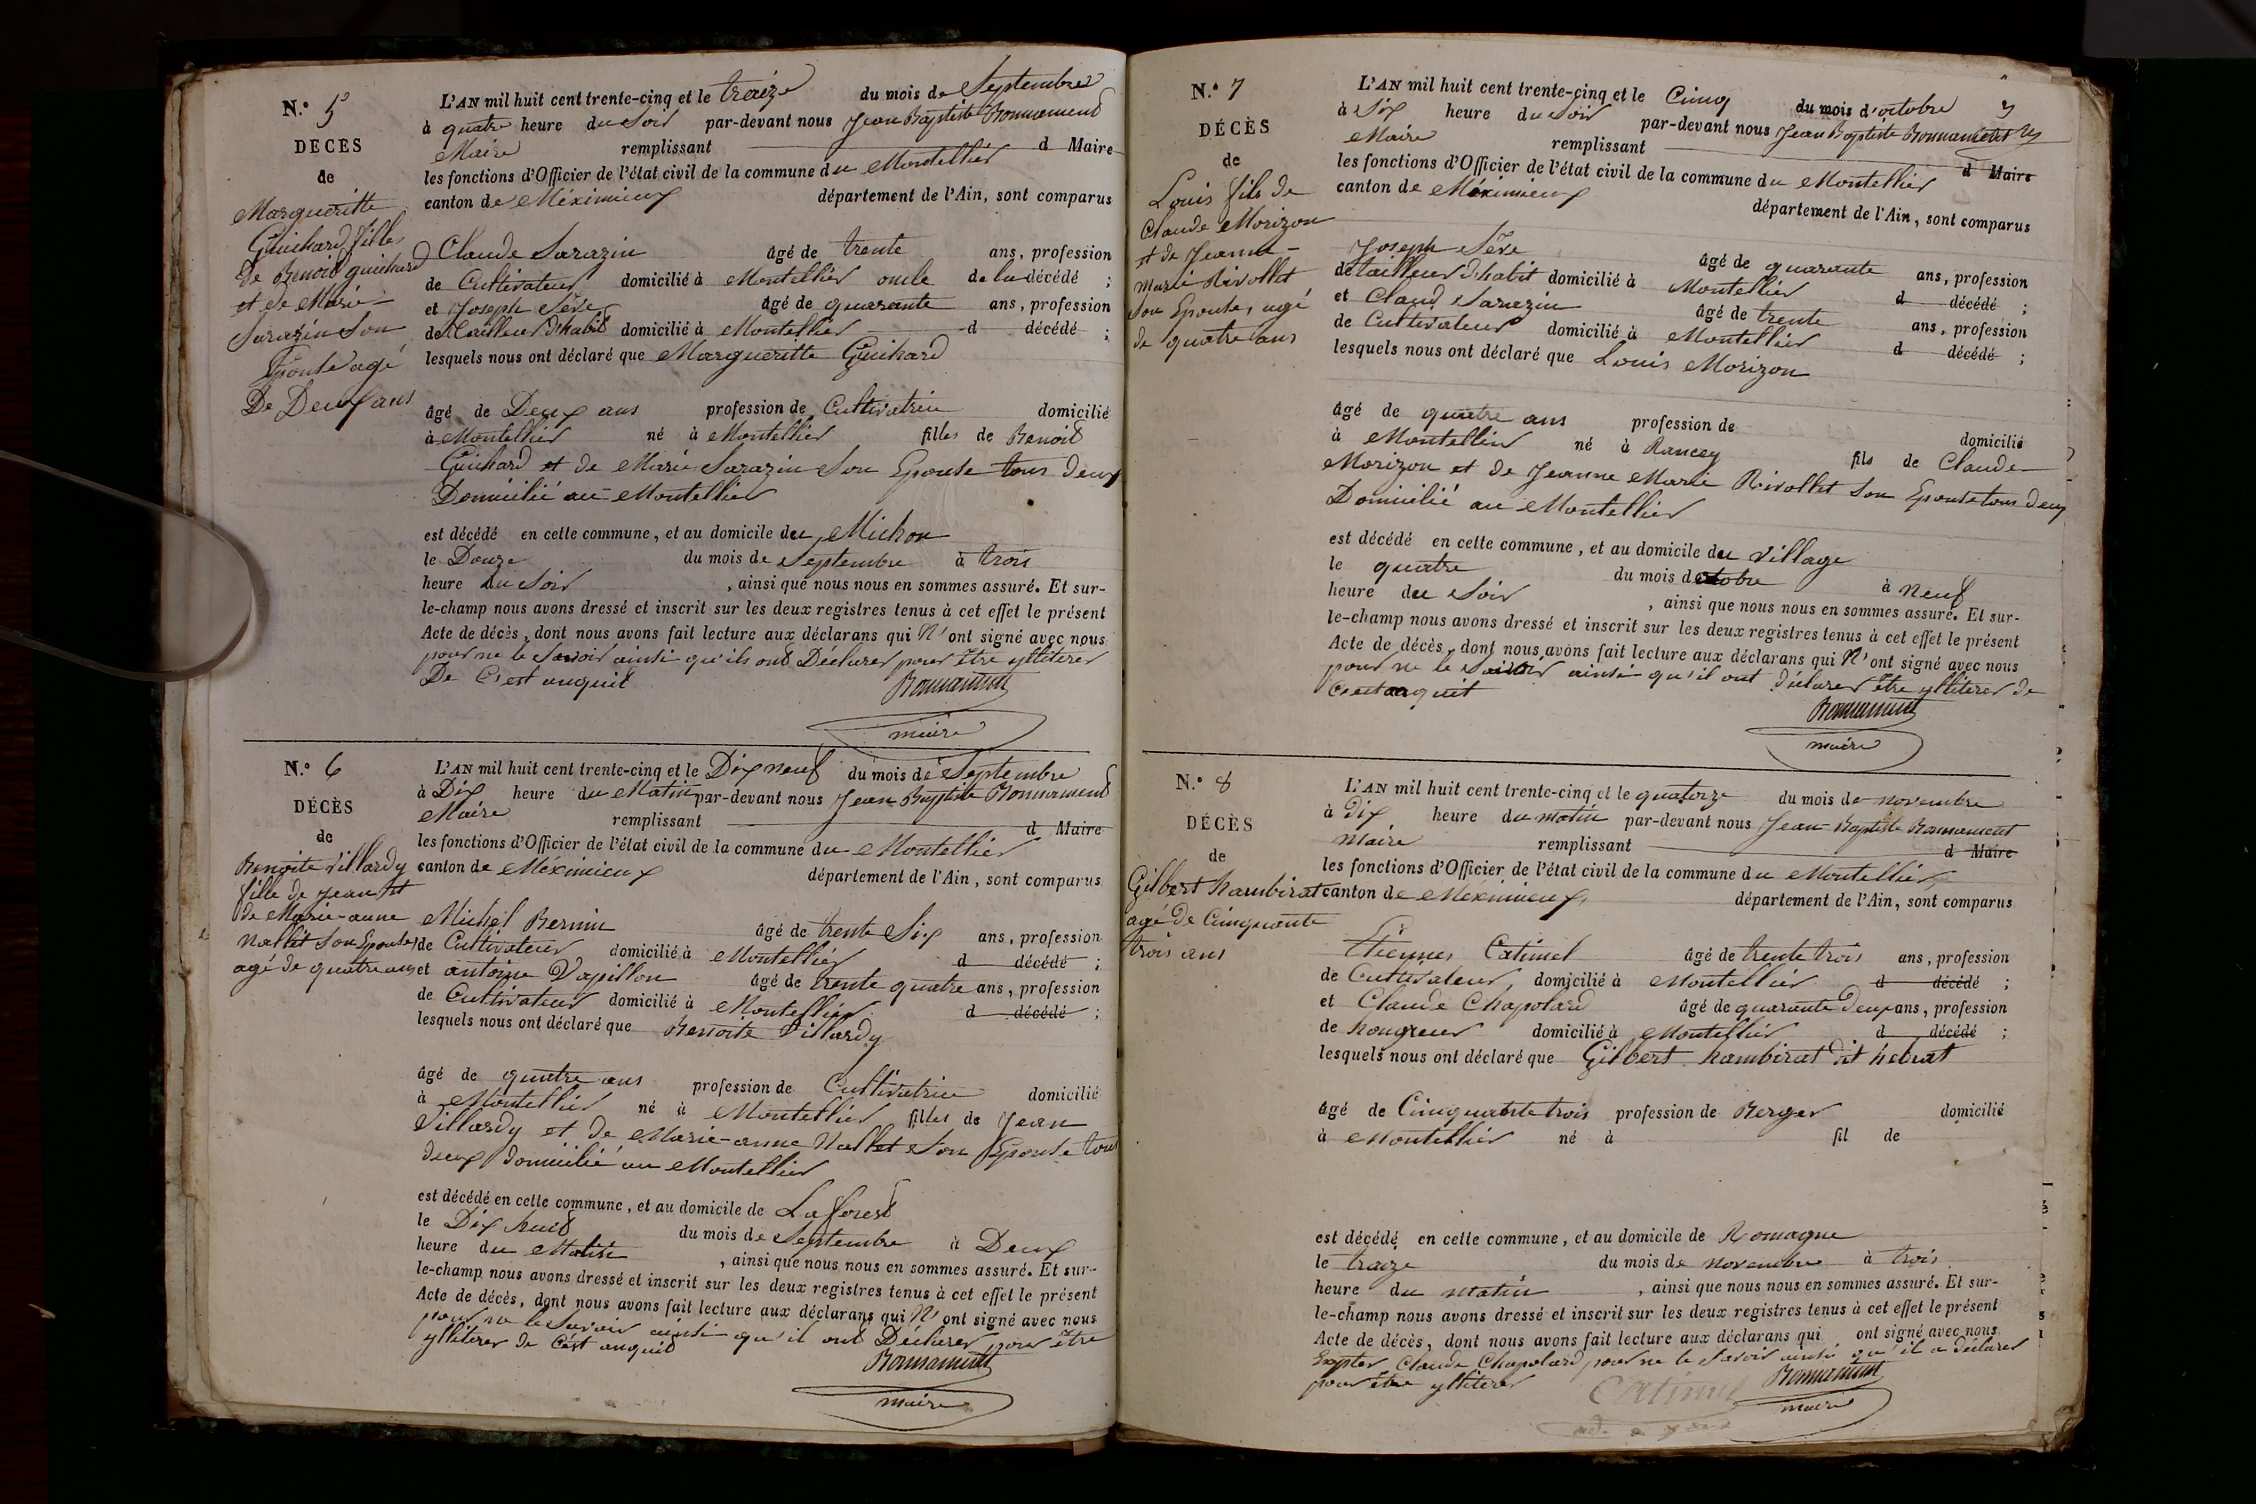 N.° 5
DÉCÈS
de
Margueritte
Guichard fille
de Benoit guichard
et de Marie
Sarazin Son
Epouse agé
De Deux ans
L'AN mil huit cent trente-cinq et le traize du mois de Septembre
à quatre heure du Soir par-devant nous Jean Baptiste Bonnament
Maire remplissant d Maire
les fonctions d'Officier de l'état civil de la commune du Montellier
canton de Méximieux département de l'Ain, sont comparus
Claude Sarazin âgé de trente ans, profession
de Cultivateur domicilié à Montellier oncle de la décédé ;
et Joseph Sève âgé de quarante ans, profession
de Tailleur d'habit domicilié à Montellier d décédé ;
lesquels nous ont déclaré que Margueritte Guichard
âgé de Deux ans profession de Cultivatrice domicilié
à Montellier né à Montellier filles de Benoit
Guichard et de Marie Sarazin Son Epouse tous deux
Domicilié au Montellier
est décédé en cette commune, et au domicile du Michon
le Douze du mois de Septembre à trois
heure du Soir , ainsi que nous nous en sommes assuré. Et sur-
le-champ nous avons dressé et inscrit sur les deux registres tenus à cet effet le présent
Acte de décès, dont nous avons fait lecture aux déclarans qui N'ont signé avec nous
pour ne le Savoir ainsi qu'ils ont Déclarer pour être ylliterer
De C'est anquit
Bonnament
maire
N.° 6
DÉCÈS
de
Benoite Villardy
fille de Jean et
de Marie-anne
Nallet Son Epouse
agé de quatre ans
L'AN mil huit cent trente-cinq et le Dix neuf du mois de Septembre
à Dix heure du Matin par-devant nous Jean Baptiste Bonnament
Maire remplissant d Maire
les fonctions d'Officier de l'état civil de la commune du Montellier
canton de Méximieux département de l'Ain, sont comparus
Michel Bernin âgé de trente Six ans, profession
de Cultivateur domicilié à Montellier d décédé ;
et antoine Vapillon âgé de trente quatre ans, profession
de Cultivateur domicilié à Montellier d décédé ;
lesquels nous ont déclaré que Benoite Villardy
âgé de quatre ans profession de Cultivatrice domicilié
à Montellier né à Montellier filles de Jean
Villardy et de Marie-anne Nallet Son Epouse tous
deux domicilié au Montellier
est décédé en cette commune, et au domicile de La forest
le Dix huit du mois de Septembre à Deux
heure du Matin , ainsi que nous nous en sommes assuré. Et sur-
le-champ nous avons dressé et inscrit sur les deux registres tenus à cet effet le présent
Acte de décès, dont nous avons fait lecture aux déclarans qui N'ont signé avec nous
pour ne le Savoir ainsi qu'il ont Déclarer pour être
ylliterer de C'est anquit
Bonnament
maire
N.° 7
DÉCÈS
de
Louis fils de
Claude Morizon
et de Jeanne
Marie Rivollet
Son Epouse, agé
de quatre ans
L'AN mil huit cent trente-cinq et le Cinq du mois d'octobre
à Six heure du Soir par-devant nous Jean Baptiste Bonnament
Maire remplissant d Maire
les fonctions d'Officier de l'état civil de la commune du Montellier
canton de Méximieux département de l'Ain, sont comparus
Joseph Sève âgé de quarante ans, profession
de tailleur d'habit domicilié à Montellier d décédé ;
et Claud Sarazin âgé de trente ans, profession
de Cultivateur domicilié à Montellier d décédé ;
lesquels nous ont déclaré que Louis Morizon
âgé de quatre ans profession de domicilié
à Montellier né à Rancey fils de Claude
Morizon et de Jeanne Marie Rivollet Son Epouse tous deux
Domicilié au Montellier
est décédé en cette commune, et au domicile du Village
le quatre du mois d'octobre à neuf
heure du Soir , ainsi que nous nous en sommes assuré. Et sur-
le-champ nous avons dressé et inscrit sur les deux registres tenus à cet effet le présent
Acte de décès, dont nous avons fait lecture aux déclarans qui N'ont signé avec nous
pour ne le Savoir ainsi qu'il ont déclarer être ylliterer de
C'est anquit
Bonnament
maire
N.° 8
DÉCÈS
de
Gilbert hambirat
agé De Cinquante
trois ans
L'AN mil huit cent trente-cinq et le quatorze du mois de novembre
à dix heure du matin par-devant nous Jean-Baptiste Bonnament
Maire remplissant d Maire
les fonctions d'Officier de l'état civil de la commune du Montellier
canton de Méximieux, département de l'Ain, sont comparus
Etienne Catimel âgé de trente trois ans, profession
de Cultivateur, domicilié à Montellier d décédé ;
et Claude Chapolard âgé de quarante Deux ans, profession
de hongreur domicilié à Montellier d décédé ;
lesquels nous ont déclaré que Gilbert hambirat dit
âgé de Cinquante trois profession de Berger domicilié
à Montellier né à fil de
est décédé en cette commune, et au domicile de Romagne
le traize du mois de novembre à trois
heure du matin , ainsi que nous nous en sommes assuré. Et sur-
le-champ nous avons dressé et inscrit sur les deux registres tenus à cet effet le présent
Acte de décès, dont nous avons fait lecture aux déclarans qui ont signé avec nous
Exepter Claude Chapolard pour ne le Savoir ainsi qu'il a déclarer
pour être ylliterer
Catimel
Bonnament
maire